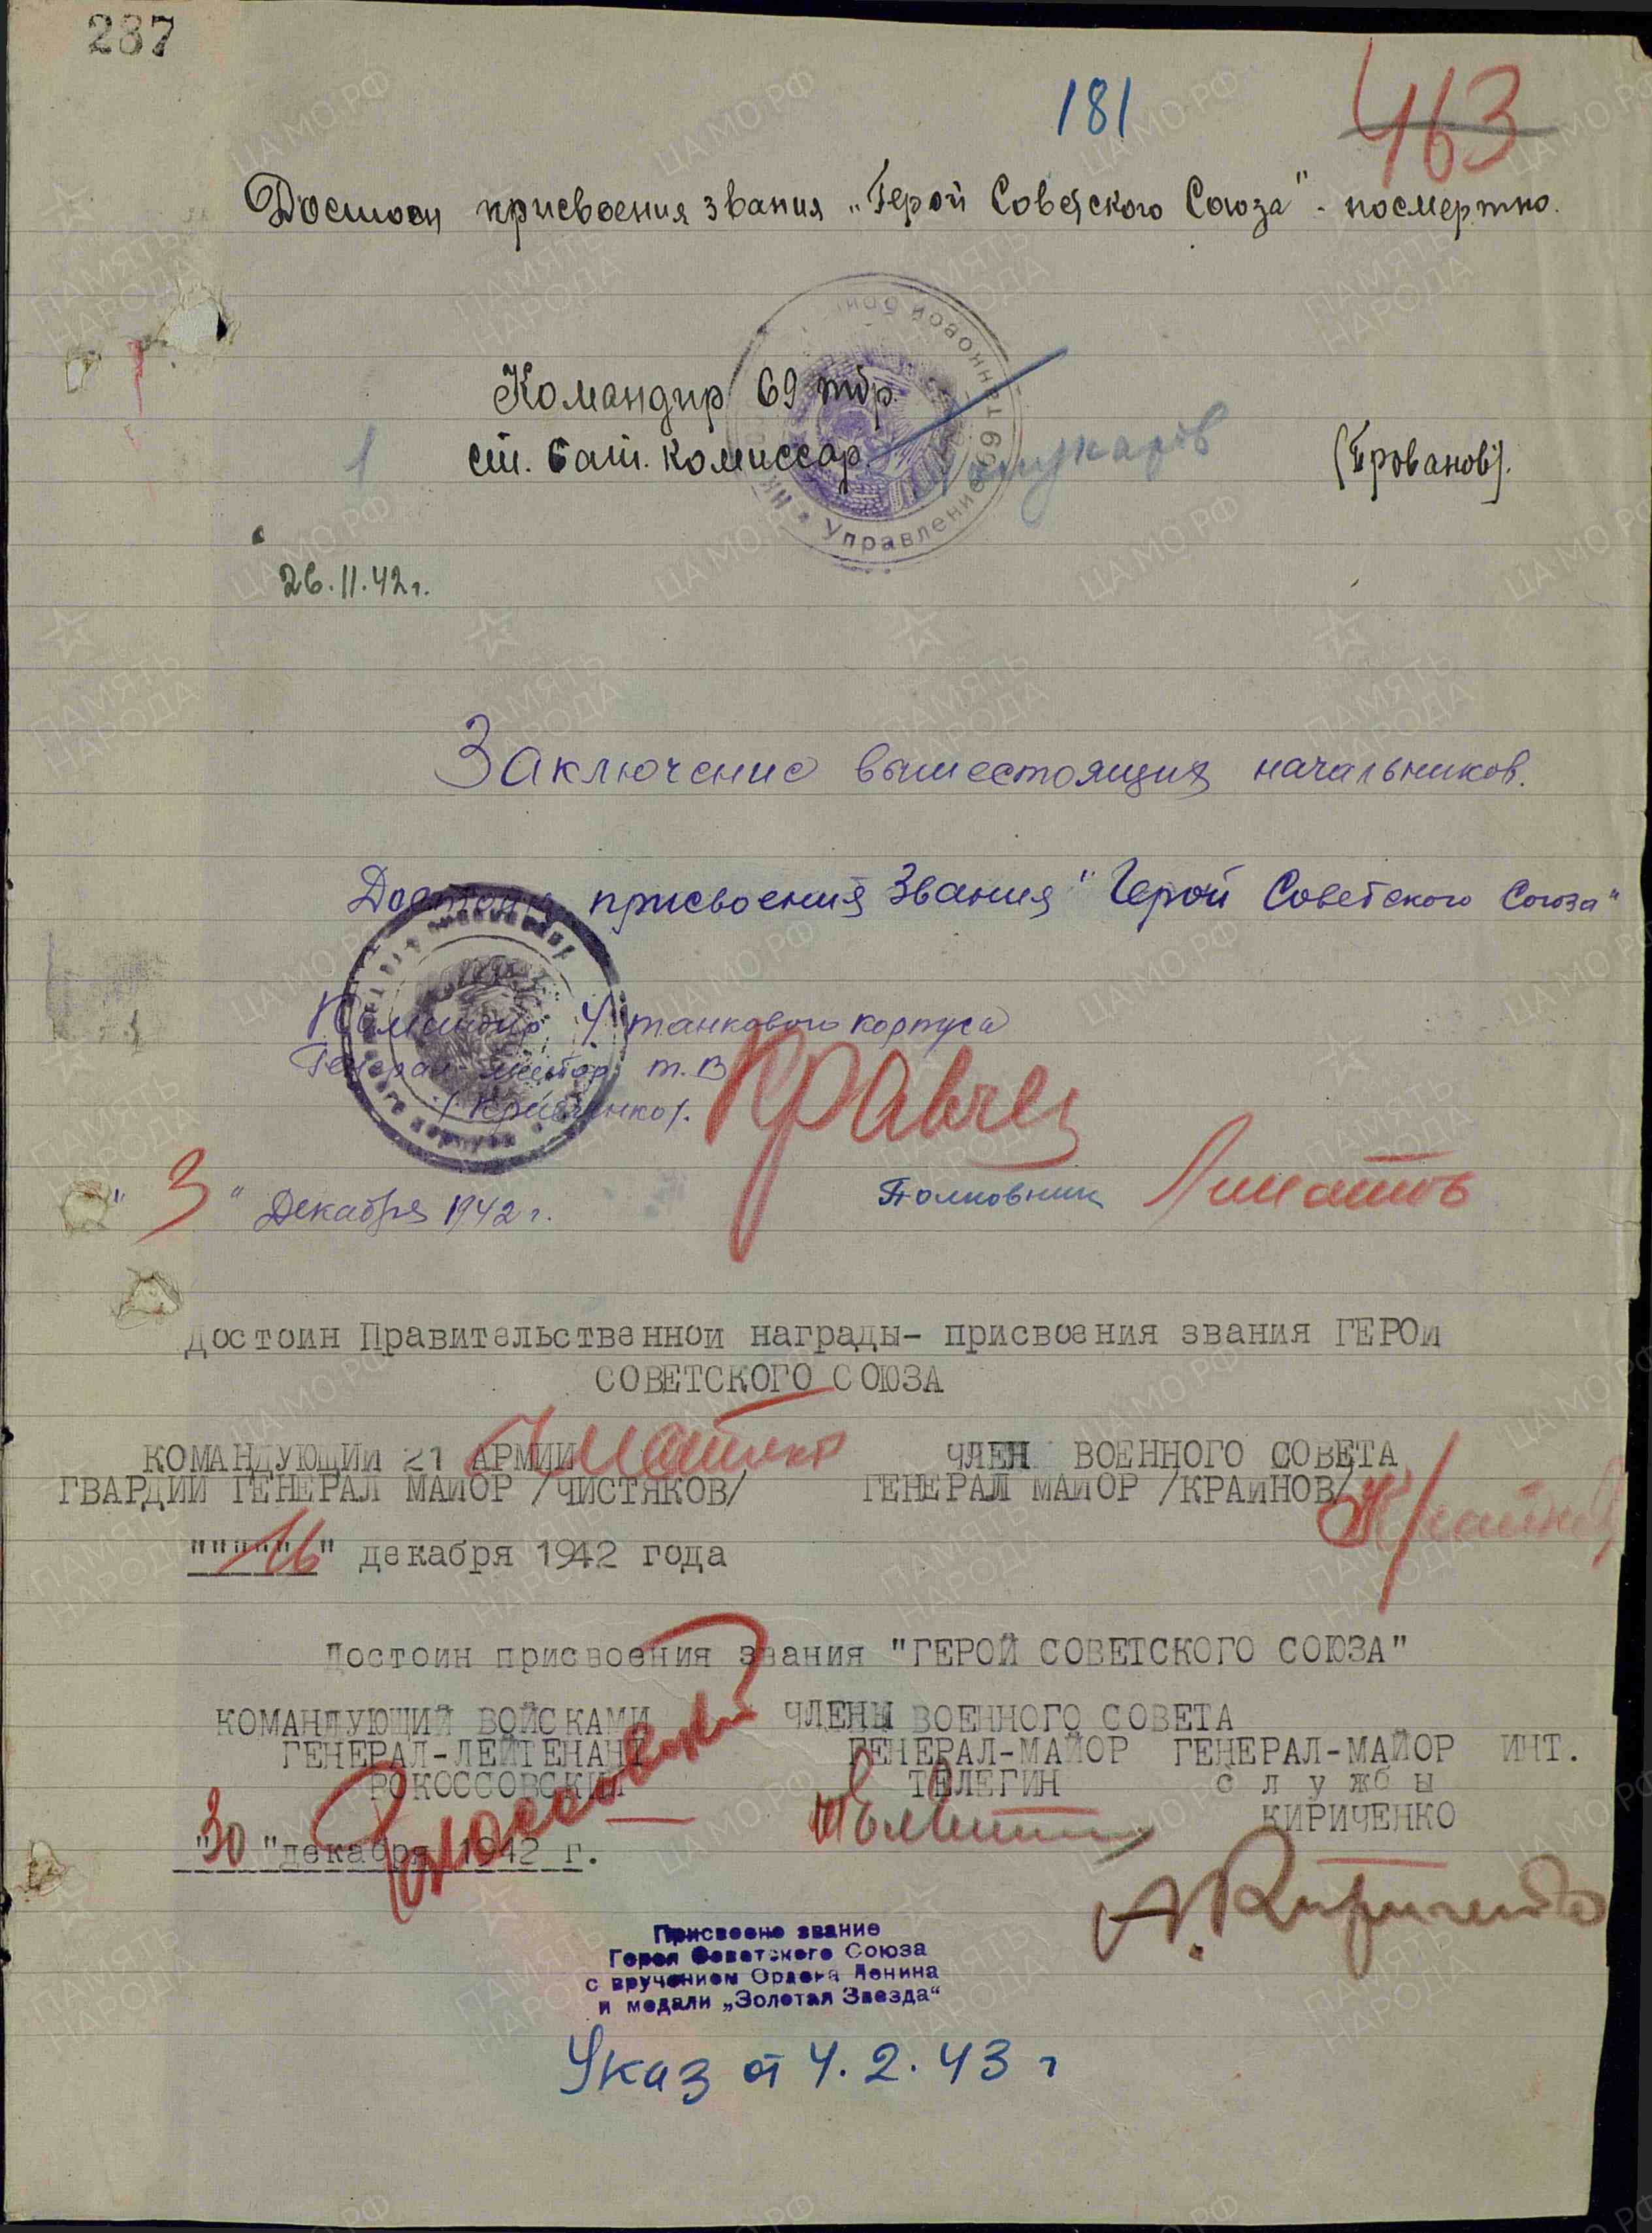 287
181
463
Достоин присвоения звания „Герой Советского Союза" - посмертно.
Командир 69 тбр.
ст. бат. комиссар (Прованов).
Управление
26.11.42г.
Заключение вышестоящих начальников.
Достоин присвоения Звания "Герой Советского Союза"
Командир 4 танкового корпуса
Генерал-майор т.в.
/Кравченко/.
"3" Декабря 1942г.
Полковник
Достоин Правительственной награды- присвоения звания ГЕРОЙ
СОВЕТСКОГО СОЮЗА
КОМАНДУЮЩИЙ 21 АРМИИ ЧЛЕН ВОЕННОГО СОВЕТА
ГВАРДИИ ГЕНЕРАЛ МАЙОР /ЧИСТЯКОВ/ ГЕНЕРАЛ МАЙОР /КРАЙНОВ/
"16" декабря 1942 года
Достоин присвоения звания "ГЕРОЙ СОВЕТСКОГО СОЮЗА"
КОМАНДУЮЩИЙ ВОЙСКАМИ ЧЛЕНЫ ВОЕННОГО СОВЕТА
ГЕНЕРАЛ-ЛЕЙТЕНАНТ ГЕНЕРАЛ-МАЙОР ГЕНЕРАЛ-МАЙОР ИНТ.
РОКОССОВСКИЙ ТЕЛЕГИН с л у ж б ы
КИРИЧЕНКО
"30"декабря 1942 г.
А. Кириченко
Присвоено звание
Героя Советского Союза
с вручением Ордена Ленина
и медали „Золотая Звезда“
Указ от 4.2.43 г